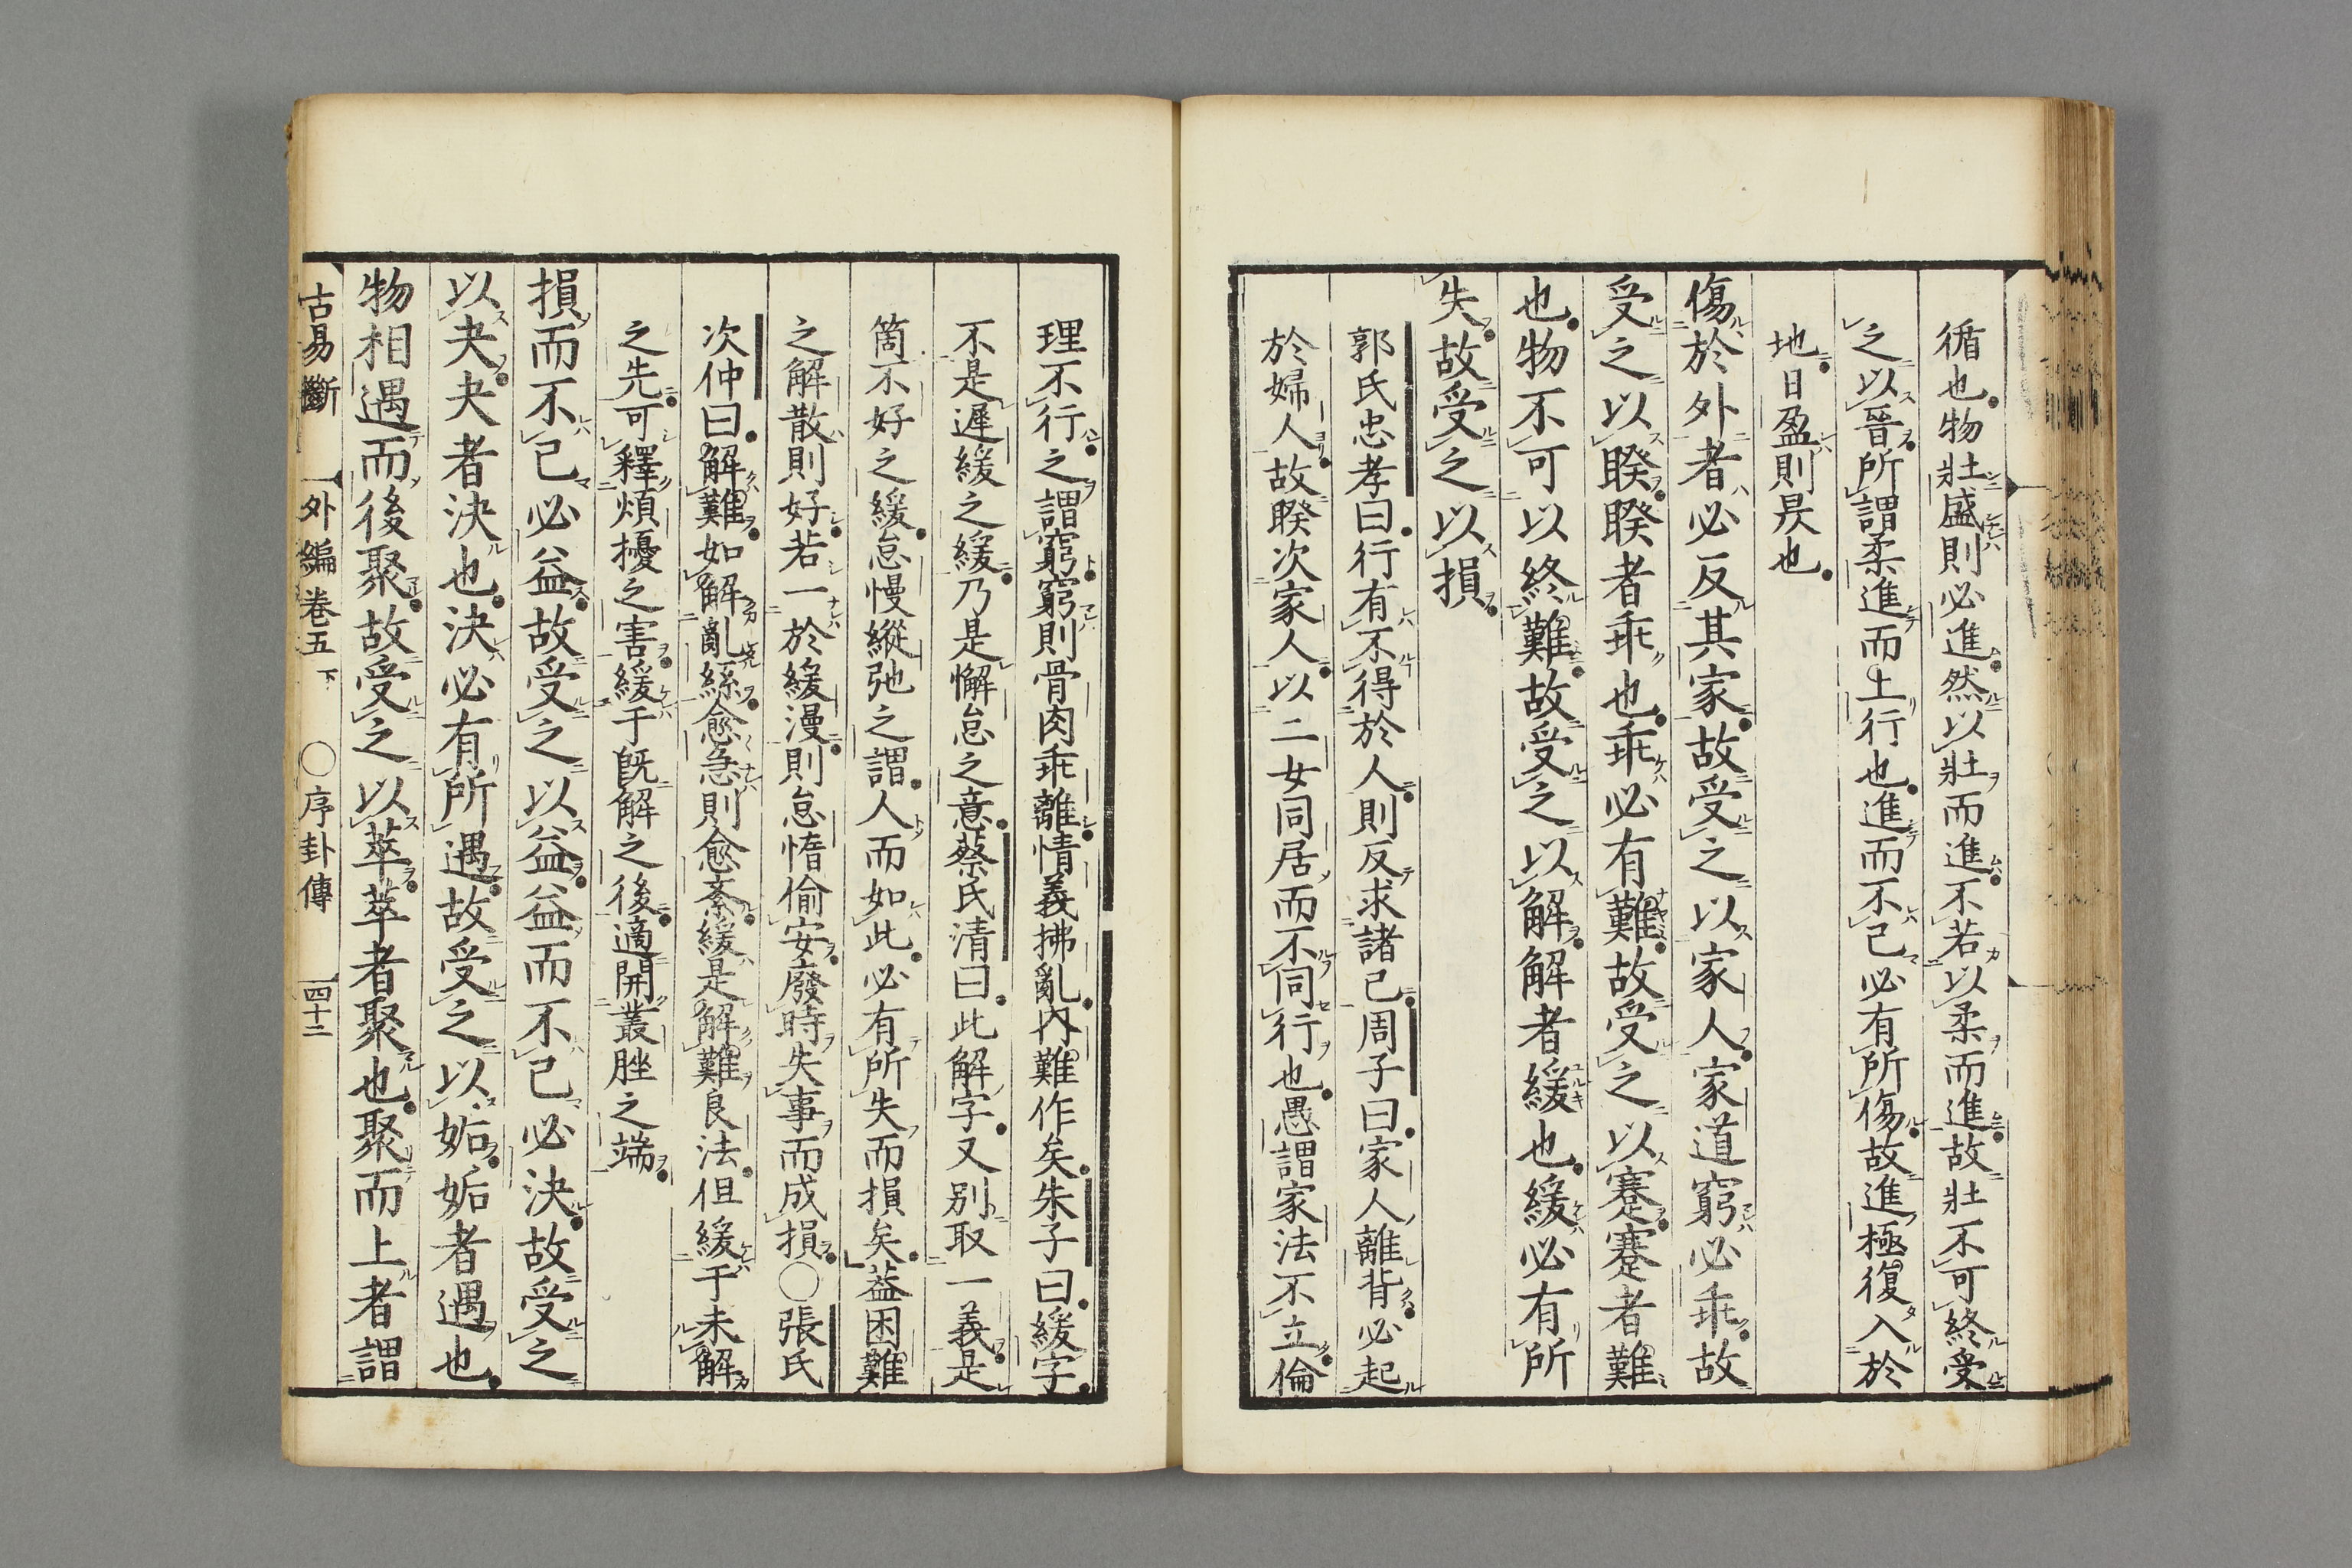 循也物壯盛則必進然以壯而進不若以柔而進故壯不可終受
之以晉所謂柔進而上行也進而不已必有所傷故進極復入於
地日盈則昃也
傷於外者必反其家故受之以家人家道窮必乖故
受之以睽睽者乖也乖必有難故受之以蹇蹇者難
也物不可以終難故受之以解解者緩也緩必有所
失故受之以損
郭氏忠孝曰行有不得於人則反求諸己周子曰家人離背必起
於婦人故睽次家人以二女同居而不同行也愚謂家法不立倫
理不行之謂窮窮則骨肉乖離情義拂亂內難作矣朱子曰緩字
不是遲緩之緩乃是懈怠之意蔡氏清曰此解字又別取一義是
箇不好之緩怠慢縱弛之謂人而如此必有所失而損矣葢困難
之解散則好若一於緩漫則怠惰偷安廢時失事而成損○張氏
次仲曰解難如解亂絲愈急則愈紊緩是解難良法但緩于未解
之先可釋煩擾之害緩于旣解之後適開叢脞之端
損而不已必益故受之以益益而不已必決故受之
以夬夬者決也決必有所遇故受之以姤姤者遇也
物相遇而後聚故受之以萃萃者聚也聚而上者謂
古易斷 外編卷五 下 ○序卦傳 四十二